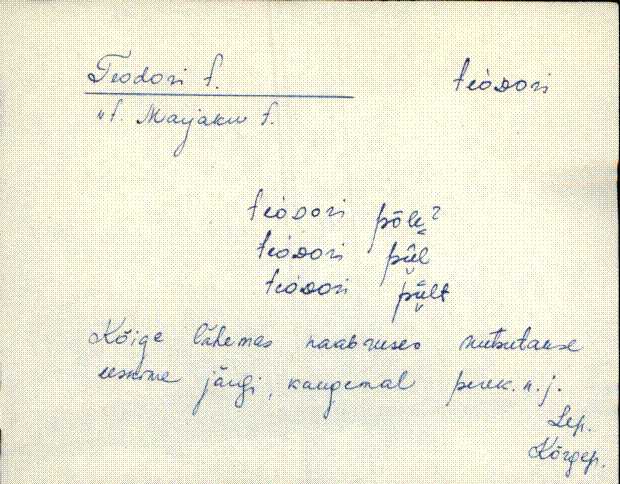 Teodori t. teòᴅori
u t. Marjaku t.
teòᴅori põlᴇ̬?
teòᴅori pǟl
teòᴅori pǟlt
Kõige lähemas naabruses nimetatakse
eesnime järgi, kaugemal perek. n. j.
Lep.
Kõrgep.